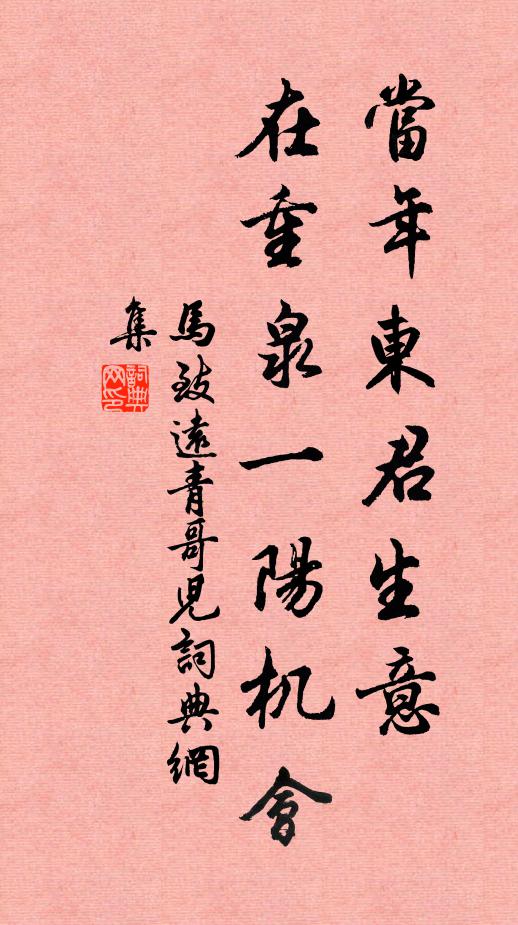 當年東君生意
在重泉一陽机會
馬致遠青哥兒詞典網
集
詞典
网印